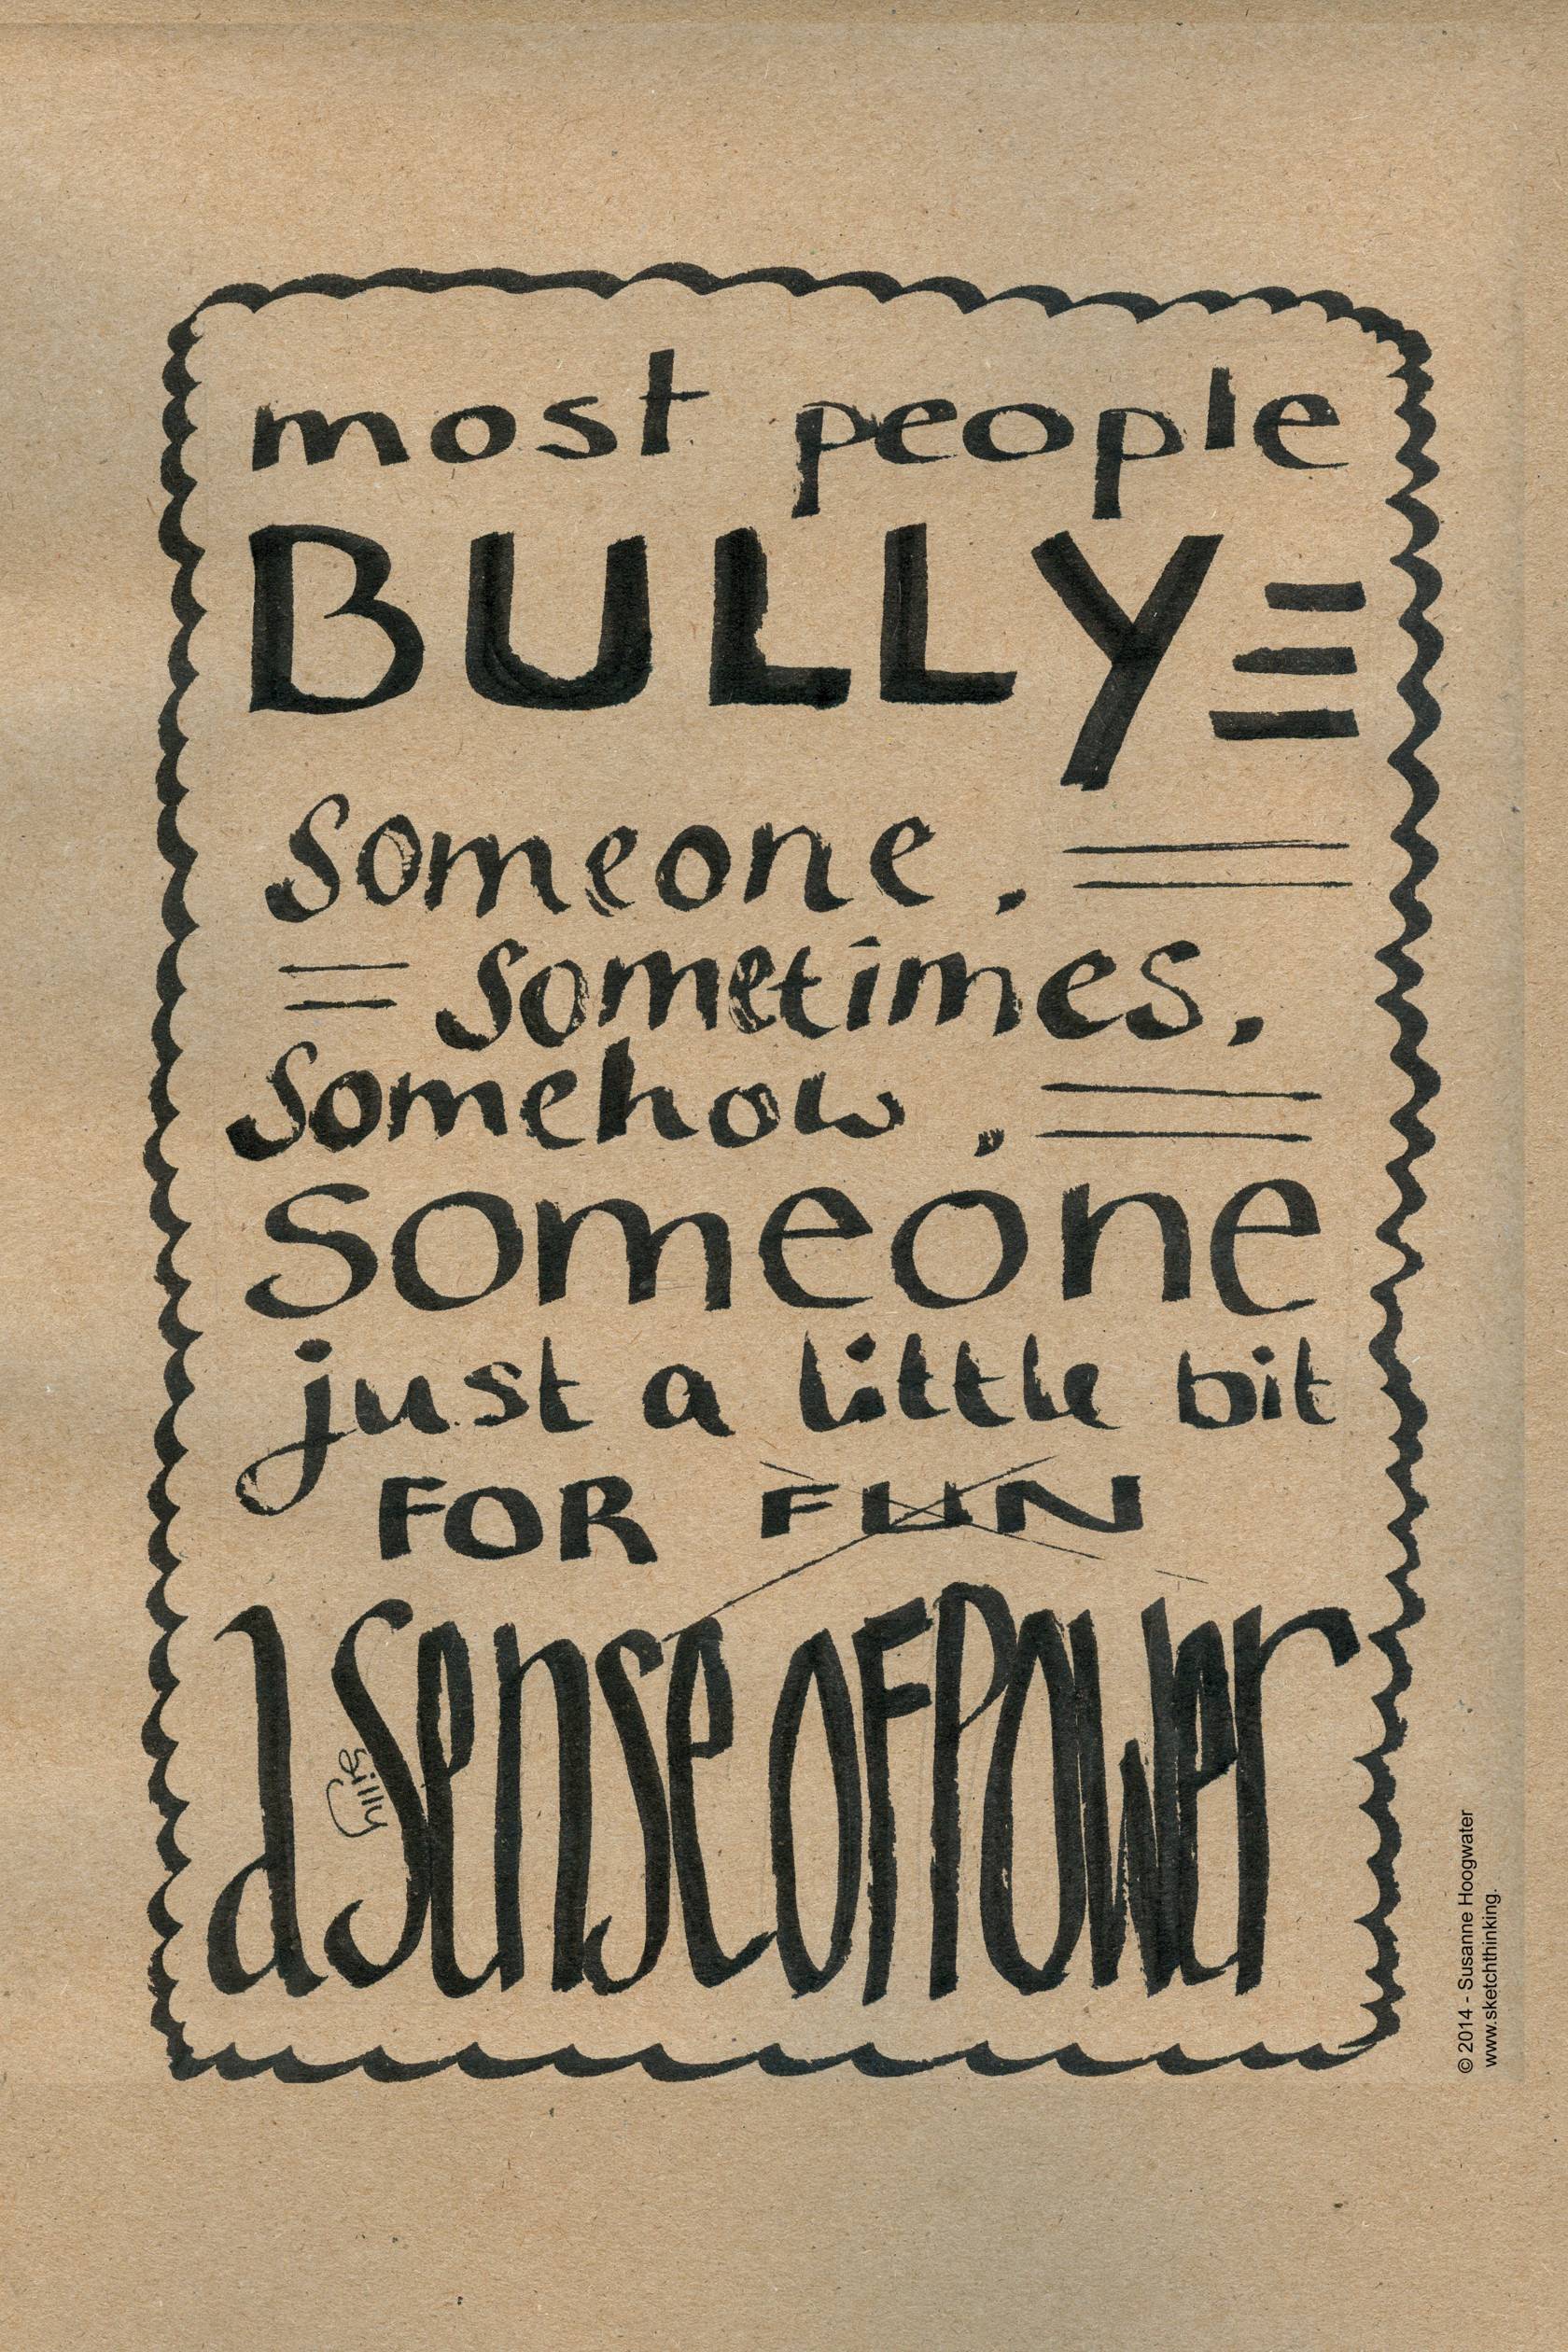 most people
BULLY
someone.
sometimes,
somehow.
someone
just a little bit
FOR FUN
a sense OF Power
silly
© 2014 - Susanne Hoogwater
www.sketchthinking.